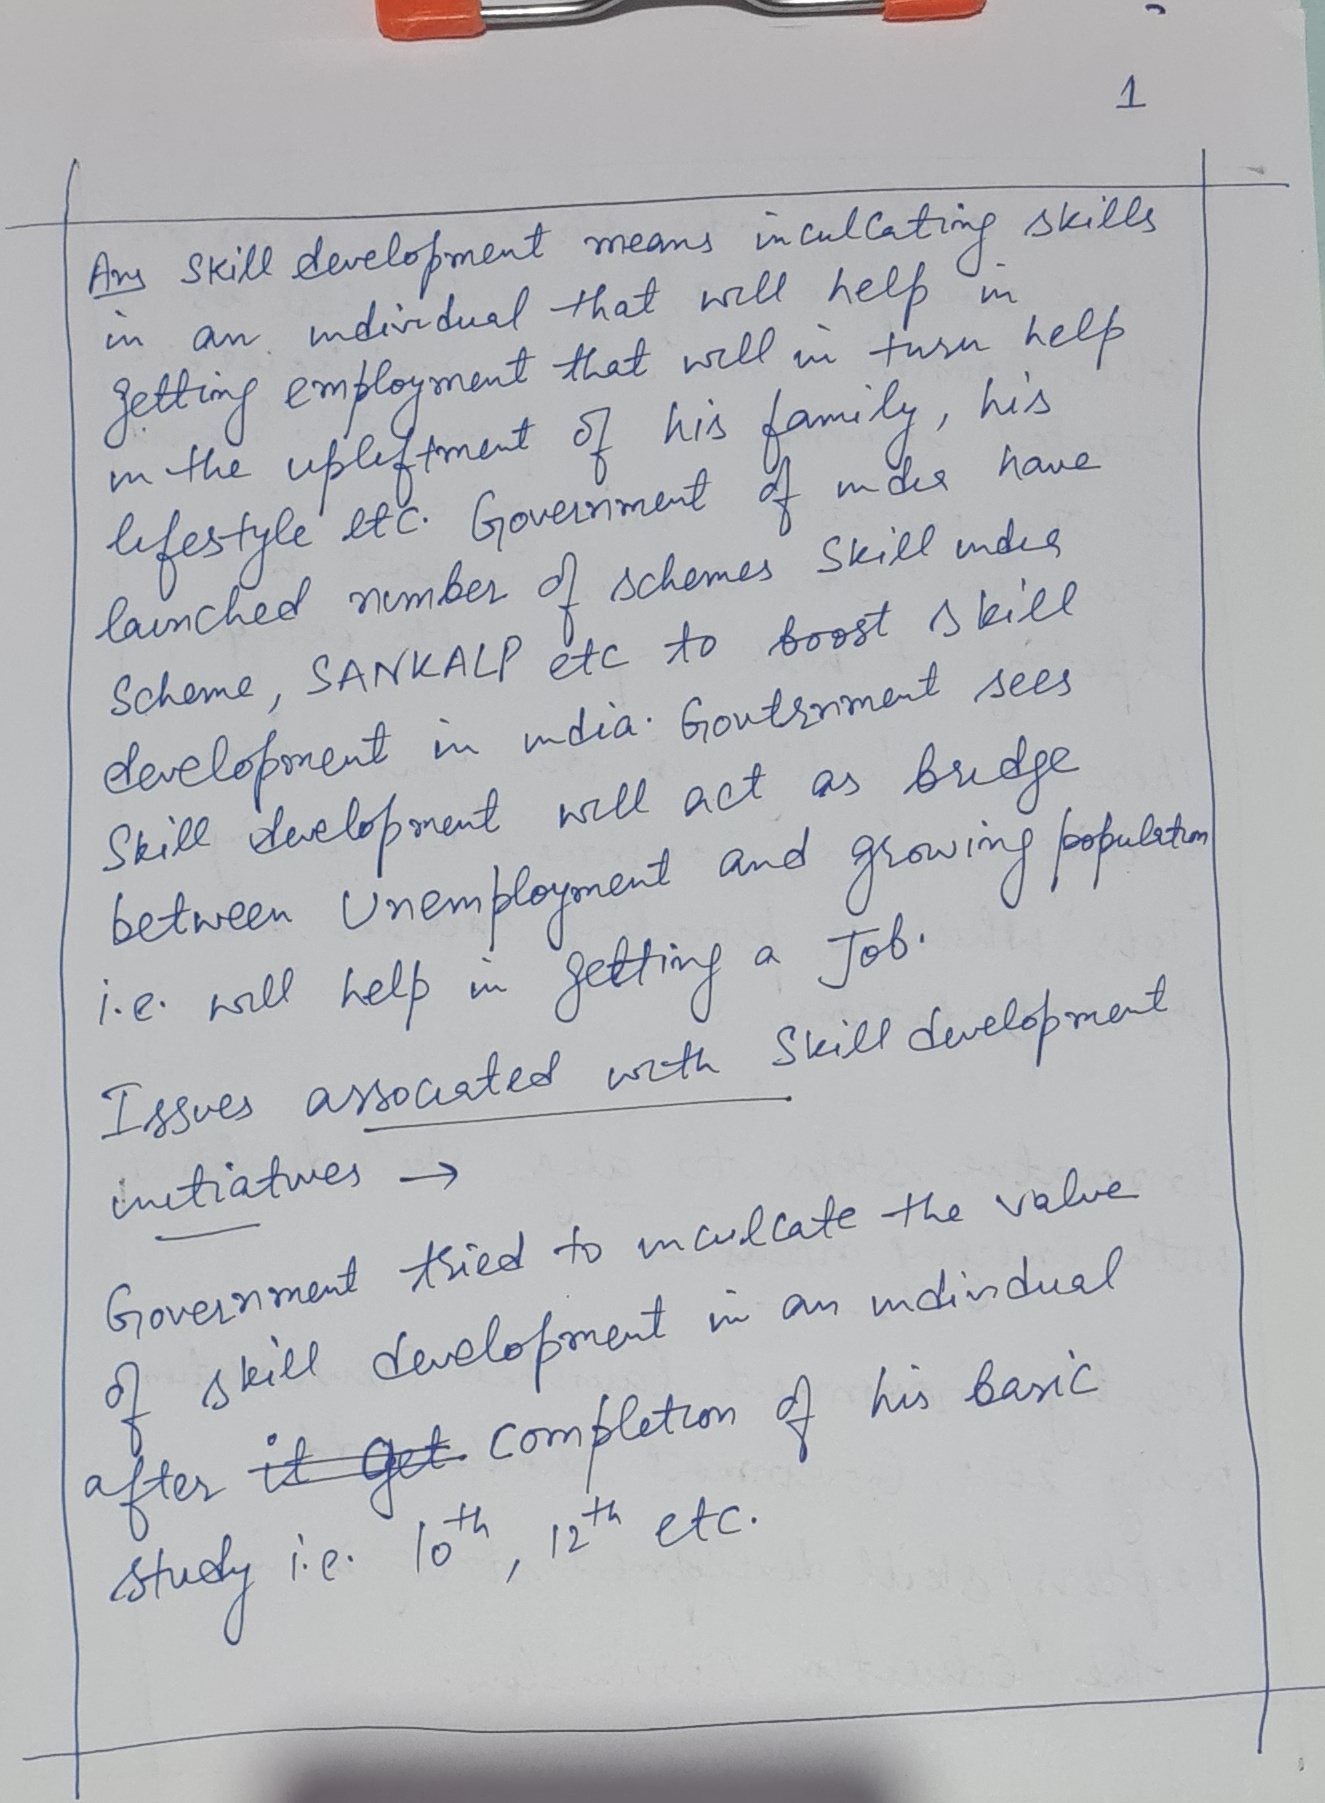 1
Ans Skill development means inculcating skills
in an individual that will help in
getting employment that will in turn help
in the upliftment of his family, his
lifestyle etc. Government of india have
launched number of schemes Skill india
Scheme, SANKALP etc to boost skill
development in india. Government sees
Skill development will act as bridge
between Unemployment and growing population
i.e. will help in getting a Job.
Issues associated with Skill development
initiatives →
Government tried to inculcate the value
of skill development in an individual
after it get completion of his basic
study i.e. 10th, 12th etc.